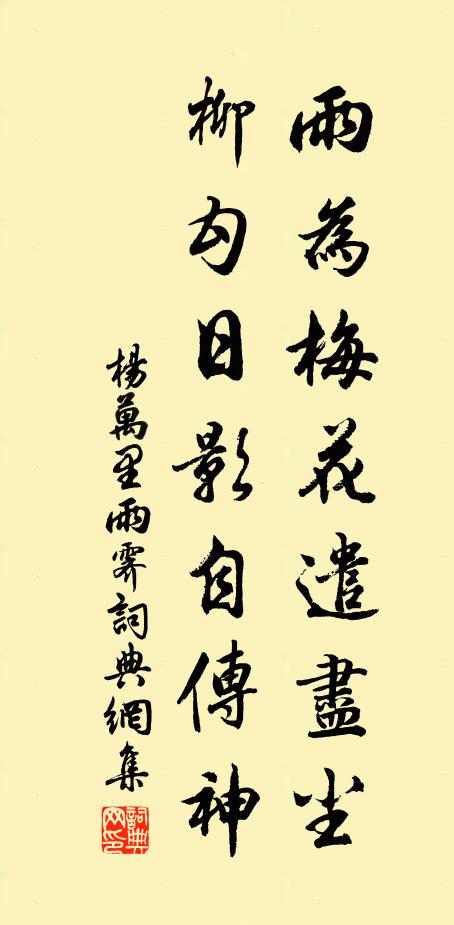 雨為梅花遣盡尘
柳勾日影自傳神
楊萬里雨霽詞典網集
詞典
网印